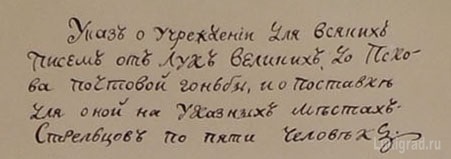 Указъ о учрежденіи для всякихъ
писемъ отъ Лукъ Великихъ, до Пско-
ва почтовой гоньбы, и о поставкѣ
для оной на указныхъ мѣстахъ
Стрельцовъ по пяти человѣкъ